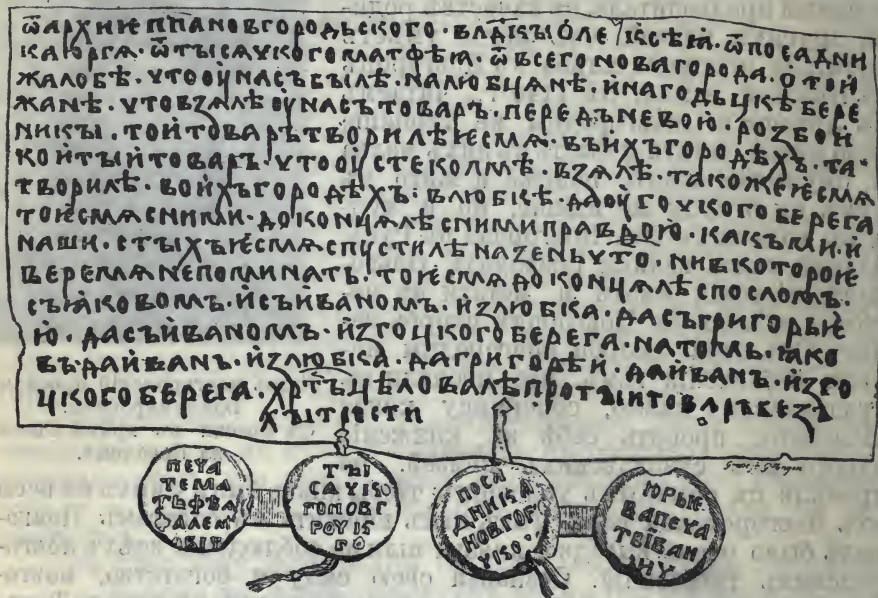 ѿархиепп҃ановгородьского·влд҃кꙑолеѯѣꙗ·ѿпосадни
каюргѧ·ѿтꙑсѧцкогоматфѣꙗ·ѿвсегоновагорода·отои
жалобѣ·ѵтооунасъбꙑлѣ·налюбцѧнѣ·инагодьцкѣбере
жанѣ·ѵтовзѧлѣоунасътоваръ·передъневою·розбои
никꙑ·тоитоварътворилѣѥсмѧ·въихъгородѣхъ·та·
коитꙑитоваръ·ѵтооустеколмѣ·взѧлѣ·такожеѥсмѧ
творилѣ·воихъгородѣхъ·влюбкѣ·даоугоѵкогоберега
тоѥсмѧсними·доконцѧлѣснимиправдою·какъми·и
наши·стꙑхъѥсмѧспустилѣназеньѵто·нивкотороѥ
веремѧнепоминать·тоѥсмѧдоконцѧлѣспосломь·
съꙗковомь·исъиваномь·излюбка·дасъгригорьѥ
ю·дасъиваномь·изгоцкогоберега·натомь·ꙗко
въдаиванъ·излюбка·дагригорѣи·даиванъ·изго
цкогоберега·хрт҃ъцѣловалѣпротꙑитоваръбезъ
хꙑтрости
пеѵа
тема
тьфѣа
фалем
тꙑ
сѧѵ
гоновг
роу
го
поса
дника
новгор
юрьѥ
вапеѵа
тьиван